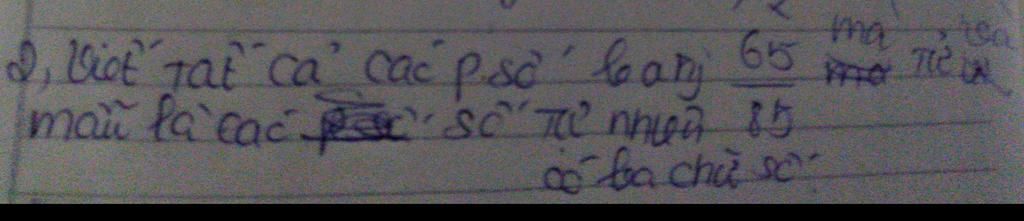 2, Viết tất cả các p.số bằng 65/85 mà tử và
mẫu là các số tự nhiên
có ba chữ số